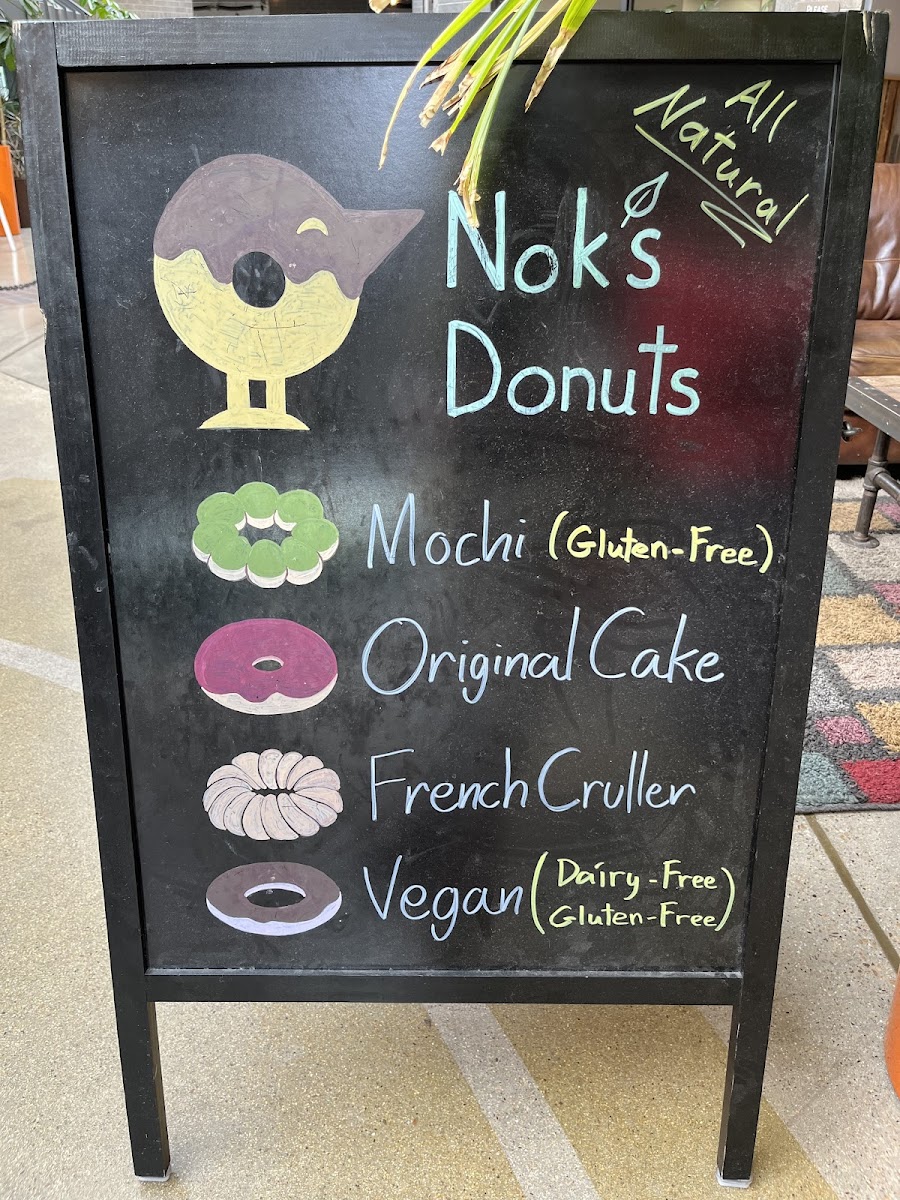 All
Natural
Nok's
Donuts
Mochi (Gluten-Free)
Original Cake
French Cruller
Vegan (Dairy-Free
Gluten-Free)